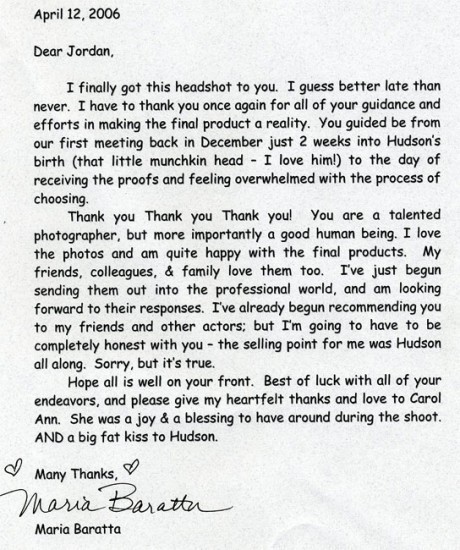 April 12, 2006
Dear Jordan,
I finally got this headshot to you. I guess better late than
never. I have to thank you once again for all of your guidance and
efforts in making the final product a reality. You guided be from
our first meeting back in December just 2 weeks into Hudson's
birth (that little munchkin head - I love him!) to the day of
receiving the proofs and feeling overwhelmed with the process of
choosing.
Thank you Thank you Thank you! You are a talented
photographer, but more importantly a good human being. I love
the photos and am quite happy with the final products. My
friends, colleagues, & family love them too. I've just begun
sending them out into the professional world, and am looking
forward to their responses. I've already begun recommending you
to my friends and other actors; but I'm going to have to be
completely honest with you – the selling point for me was Hudson
all along. Sorry, but it's true.
Hope all is well on your front. Best of luck with all of your
endeavors, and please give my heartfelt thanks and love to Carol
Ann. She was a joy & a blessing to have around during the shoot.
AND a big fat kiss to Hudson.
Many Thanks,
Maria Baratta
Maria Baratta